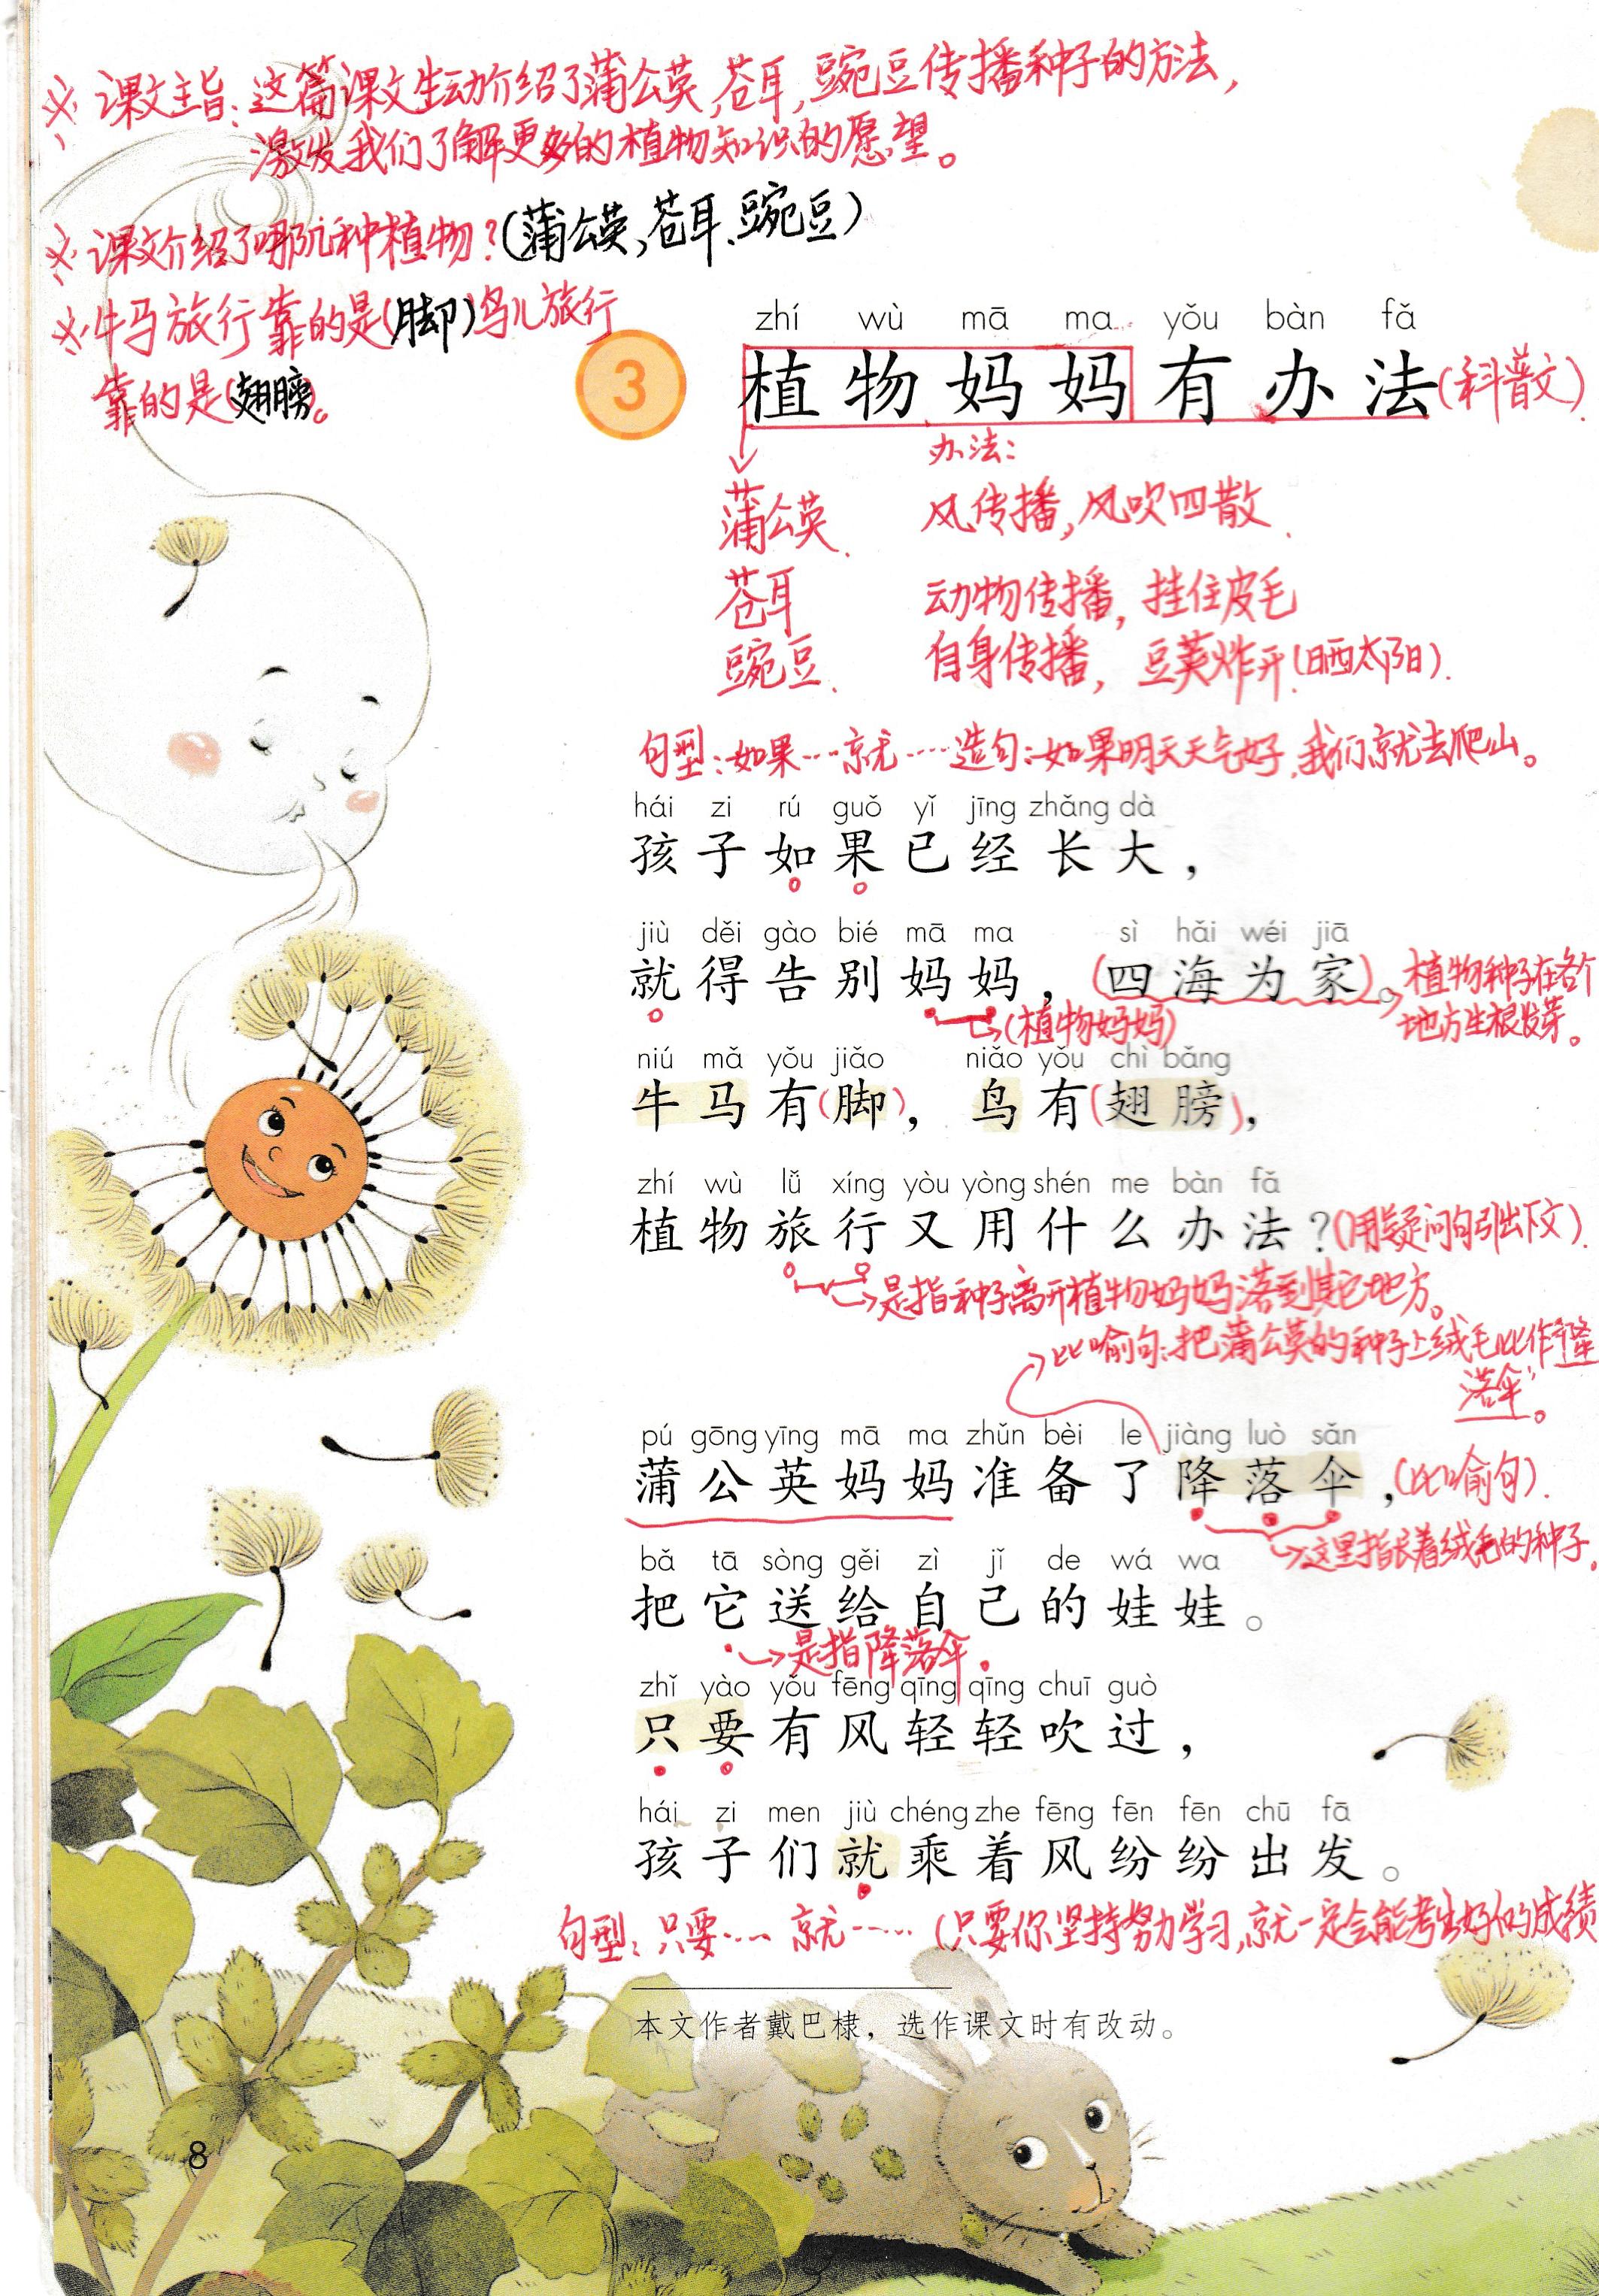 ※ 课文主旨：这篇课文生动介绍了蒲公英，苍耳，豌豆传播种子的方法，
激发我们了解更多的植物知识的愿望。
※ 课文介绍了哪几种植物？（蒲公英，苍耳、豌豆）
※ 牛马旅行靠的是（脚）鸟儿旅行
靠的是（翅膀）。
zhí wù mā ma yǒu bàn fǎ
3 植物妈妈有办法（科普文）
办法：
蒲公英 风传播，风吹四散
苍耳 动物传播，挂住皮毛
豌豆 自身传播，豆荚炸开（晒太阳）
句型：如果……就…… 造句：如果明天天气好，我们就去爬山。
hái zi rú guǒ yǐ jīng zhǎng dà
孩子如果已经长大，
jiù děi gào bié mā ma sì hǎi wéi jiā
就得告别妈妈，（四海为家）。 植物种子在各个
地方生根发芽。
（植物妈妈）
niú mǎ yǒu jiǎo niǎo yǒu chì bǎng
牛马有（脚），鸟有（翅膀），
zhí wù lǚ xíng yòu yòng shén me bàn fǎ
植物旅行又用什么办法？（用疑问句引出下文）
是指种子离开植物妈妈落到其它地方。
比喻句：把蒲公英的种子上绒毛比作“降
落伞”。
pú gōng yīng mā ma zhǔn bèi le jiàng luò sǎn
蒲公英妈妈准备了降落伞，（比喻句）
这里指长着绒毛的种子。
bǎ tā sòng gěi zì jǐ de wá wa
把它送给自己的娃娃。
是指降落伞。
zhǐ yào yǒu fēng qīng qīng chuī guò
只要有风轻轻吹过，
hái zi men jiù chéng zhe fēng fēn fēn chū fā
孩子们就乘着风纷纷出发。
句型：只要…… 就……（只要你坚持努力学习，就一定会能考出好的成绩
本文作者戴巴棣，选作课文时有改动。
8